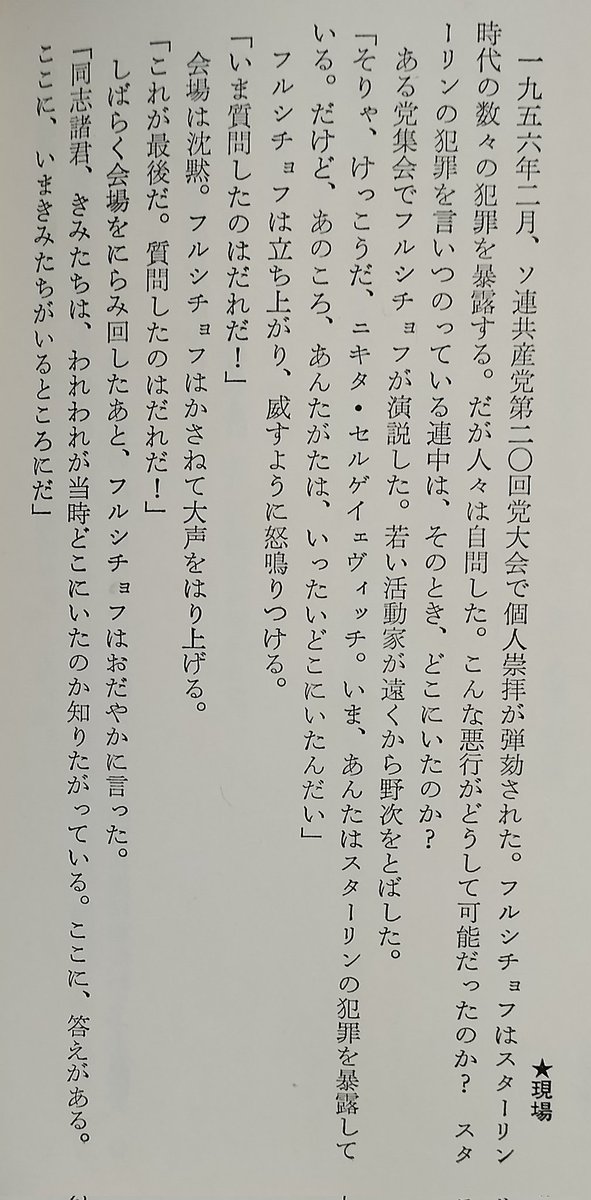 ★現場
一九五六年二月、ソ連共産党第二〇回党大会で個人崇拝が弾劾された。フルシチョフはスターリン
時代の数々の犯罪を暴露する。だが人々は自問した。こんな悪行がどうして可能だったのか？　スタ
ーリンの犯罪を言いつのっている連中は、そのとき、どこにいたのか？
ある党集会でフルシチョフが演説した。若い活動家が遠くから野次をとばした。
「そりゃ、けっこうだ、ニキタ・セルゲイェヴィッチ。いま、あんたはスターリンの犯罪を暴露して
いる。だけど、あのころ、あんたがたは、いったいどこにいたんだい」
フルシチョフは立ち上がり、威すように怒鳴りつける。
「いま質問したのはだれだ！」
会場は沈黙。フルシチョフはかさねて大声をはり上げる。
「これが最後だ。質問したのはだれだ！」
しばらく会場をにらみ回したあと、フルシチョフはおだやかに言った。
「同志諸君、きみたちは、われわれが当時どこにいたのか知りたがっている。ここに、答えがある。
ここに、いまきみたちがいるところにだ」